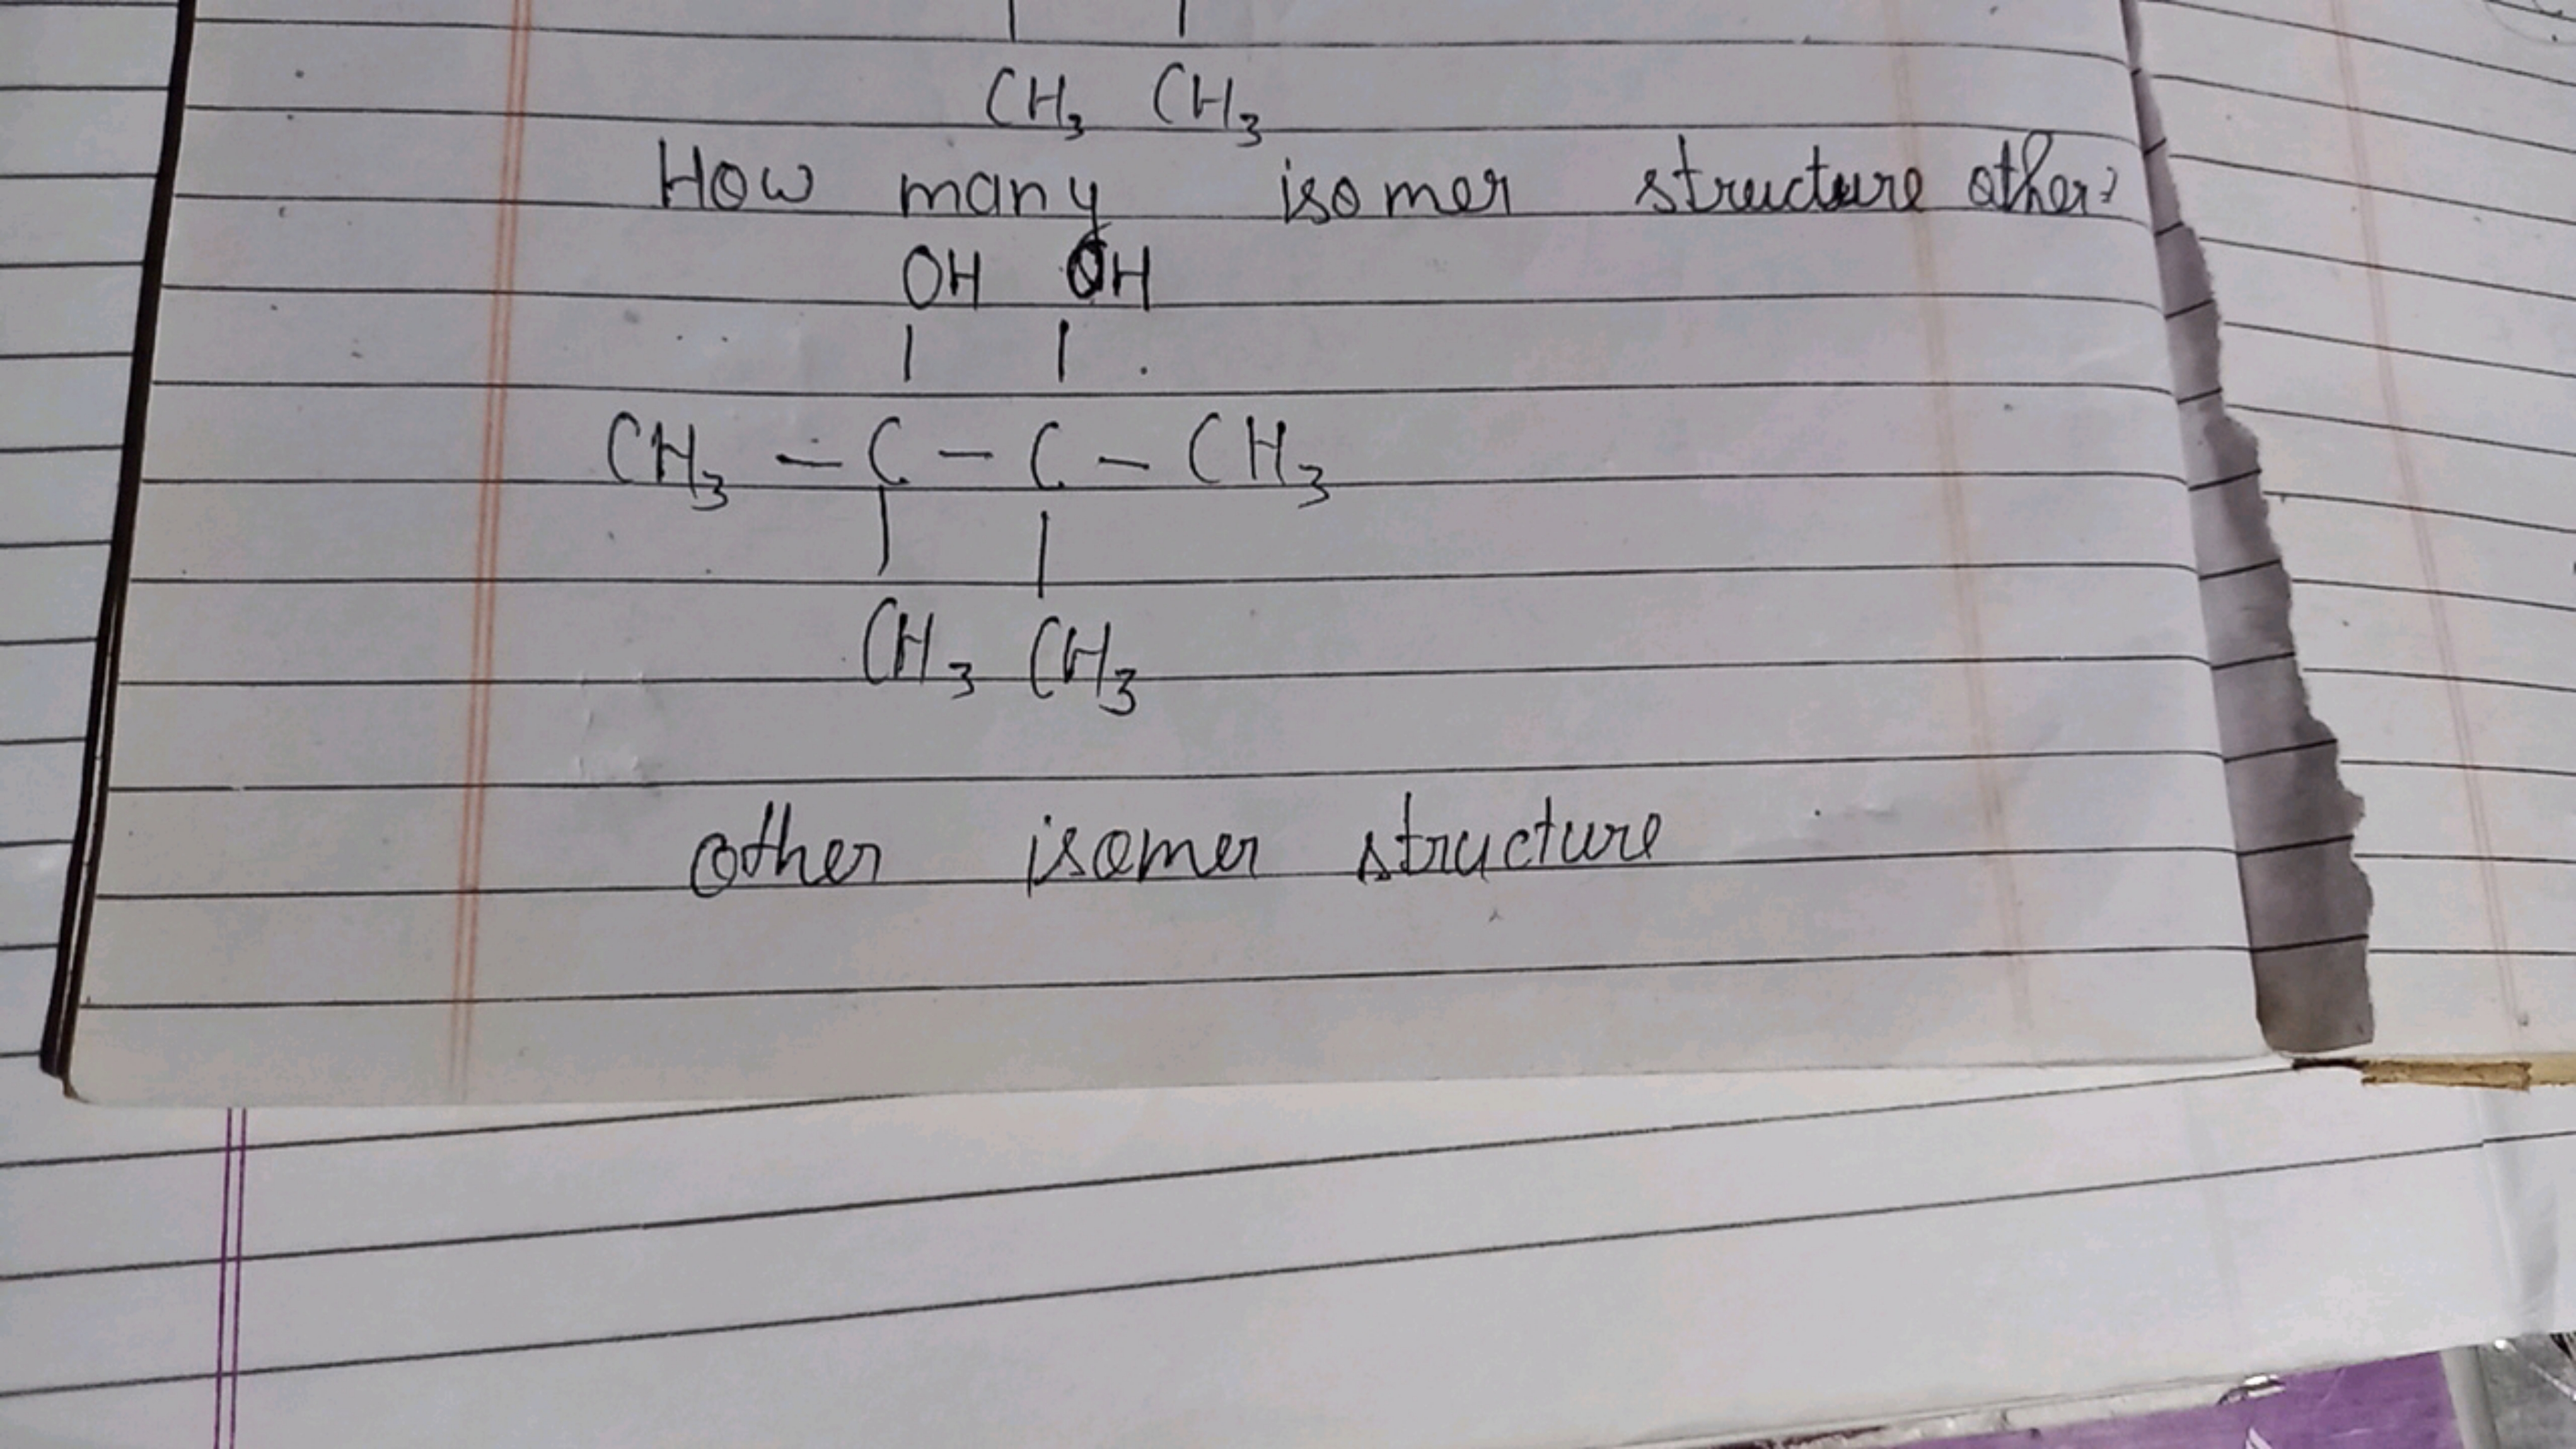 CH3 CH3
How many isomer structure other?
OH OH
CH3 - C - C - CH3
CH3 CH3
other isomer structure